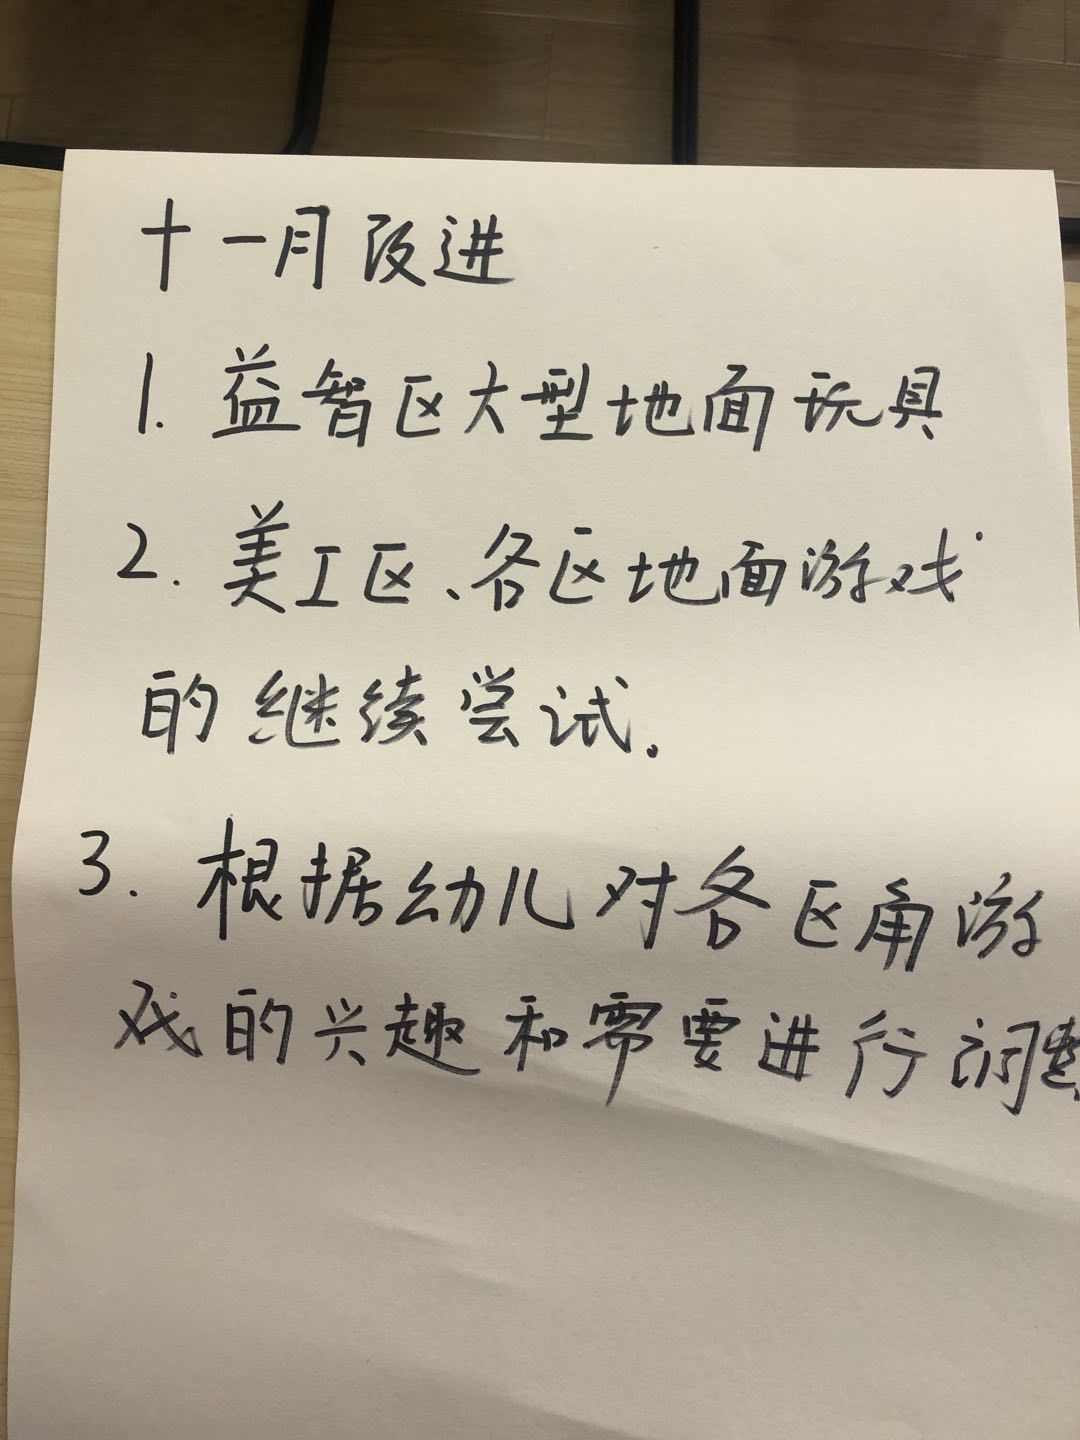 十一月改进
1. 益智区大型地面玩具
2. 美工区、各区地面游戏
的继续尝试.
3. 根据幼儿对各区角游
戏的兴趣和需要进行调整